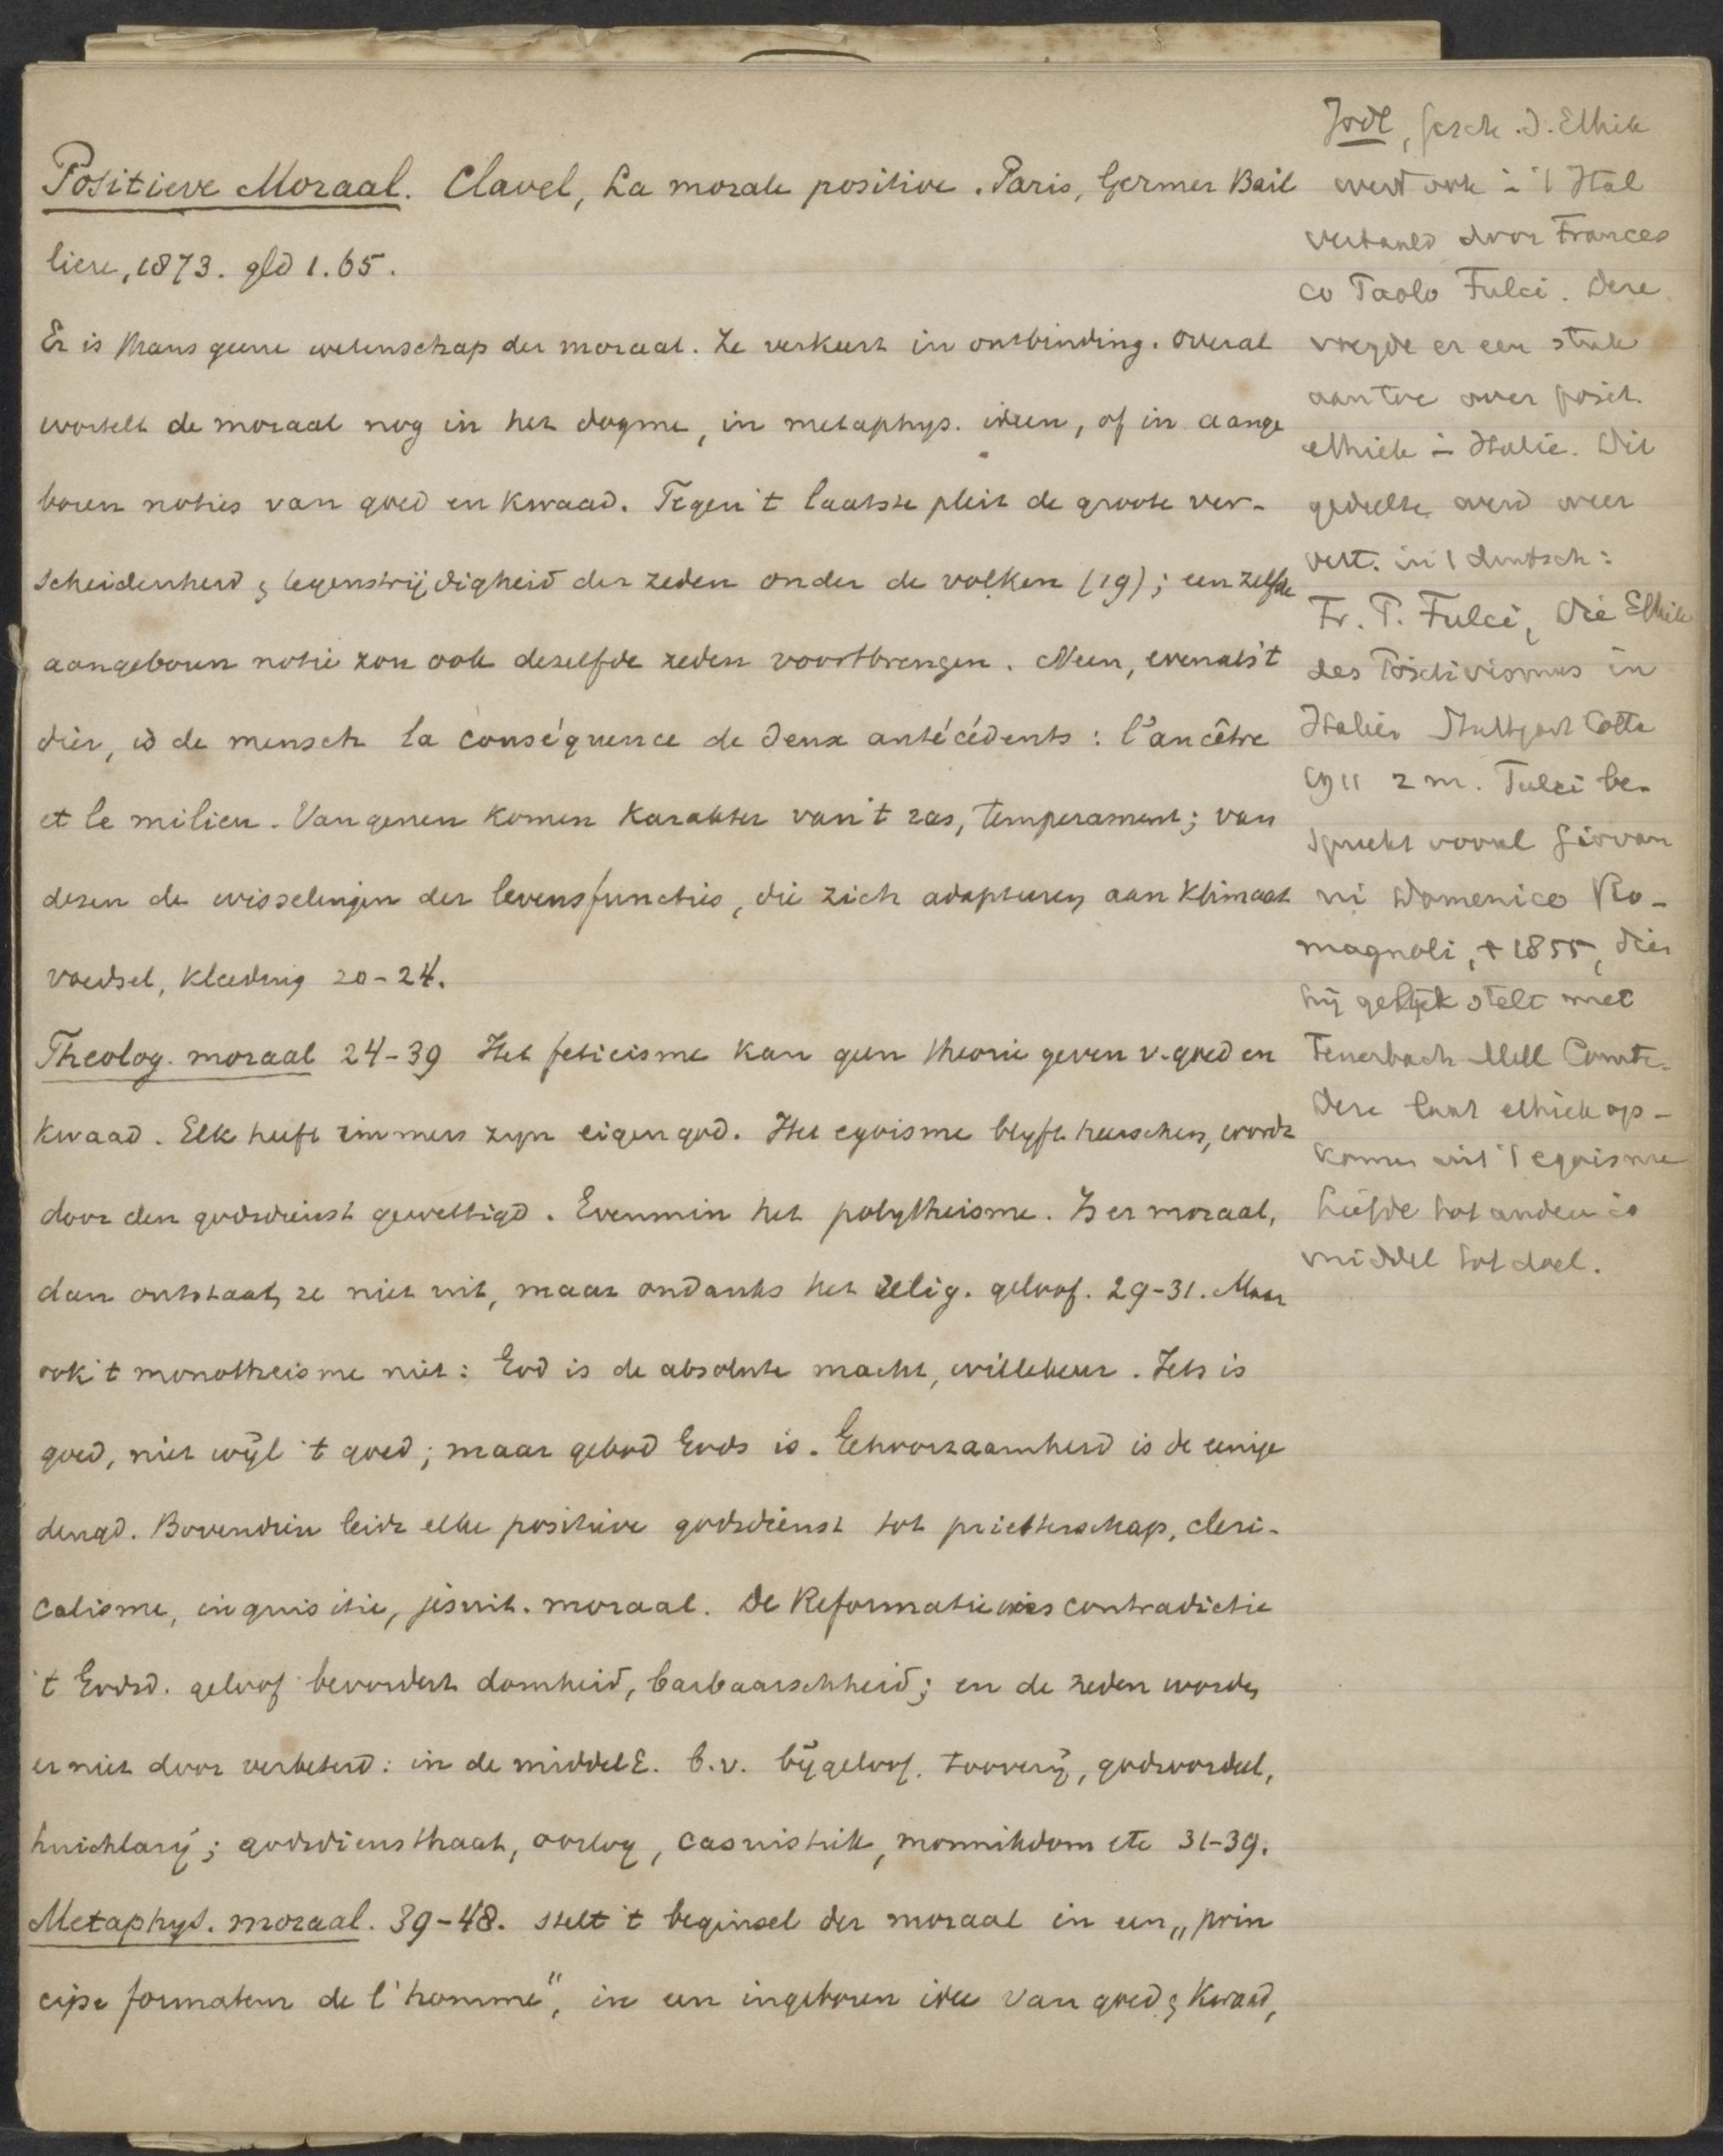 Positieve Moraal. Clavel, La morale positive. Paris, Germer Bail
liere, 1873. gld 1.65.
Er is thans geene wetenschap der moraal. Ze verkeert in ontbinding. Overal
wortelt de moraal nog in het dogme, in metaphys. ideen, of in aange
boren noties van goed en kwaad. Tegen 't laatste pleit de groote ver-
scheidenheid & tegenstrijdigheid der zeden onder de volken (19); een zelfde
aangeboren notie zou ook dezelfde zeden voortbrengen. Neen, evenals 't
dier, is de mensch la conséquence de deux antécédents: l'ancêtre
et le milieu. Van genen komen karakter van 't ras, temperament; van
dezen de wisselingen der levensfuncties, die zich adapteeren aan klimaat
voedsel, kleeding 20-24.
Theolog. moraal 24-39 Het feticisme kan geen theorie geven v. goed en
kwaad. Elk heeft immers zyn eigen god. Het egoisme blyft heerschen, wordt
door den godsdienst gewettigd. Evenmin het polytheisme. Is er moraal,
dan ontstaat ze niet uit, maar ondanks het relig. geloof. 29-31. Maar
ook 't monotheisme niet: God is de absolute macht, willekeur. Iets is
goed, niet wijl 't goed; maar gebod Gods is. Gehoorzaamheid is de eenige
deugd. Bovendien leidt elke positieve godsdienst tot priesterschap, cleri-
calisme, inquisitie, jesuit. moraal. De Reformatie is contradictie
't Godsd. geloof bevordert domheid, barbaarschheid; en de zeden worden
er niet door verbeterd: in de middelE. b.v. bijgeloof, tooverij, godsoordeel,
huichlarij; godsdiensthaat, oorlog, casuistiek, monnikdom etc 31-39.
Metaphys. moraal. 39-48. stelt 't beginsel der moraal in een „prin
cipe formateur de l'homme", in een ingeboren idee van goed & kwaad,
Jodl, Gesch. d. Ethik
werd ook in 't Ital
vertaald door Frances
co Paolo Fulci. Deze
voegde er een stuk
aan toe over posit.
ethiek in Italie. Dit
gedeelte werd weer
vert. in 't duitsch:
Fr. P. Fulci, Die Ethik
des Positivismus in
Italien Stuttgart Cotta
1911 2 m. Fulci be-
spreekt vooral Giovan
ni Domenico Ro-
magnoli, † 1855, dien
hij gelijk stelt met
Feuerbach Mill Comte.
Deze laat ethiek op-
komen uit 't egoisme
liefde tot anderen is
middel tot doel.